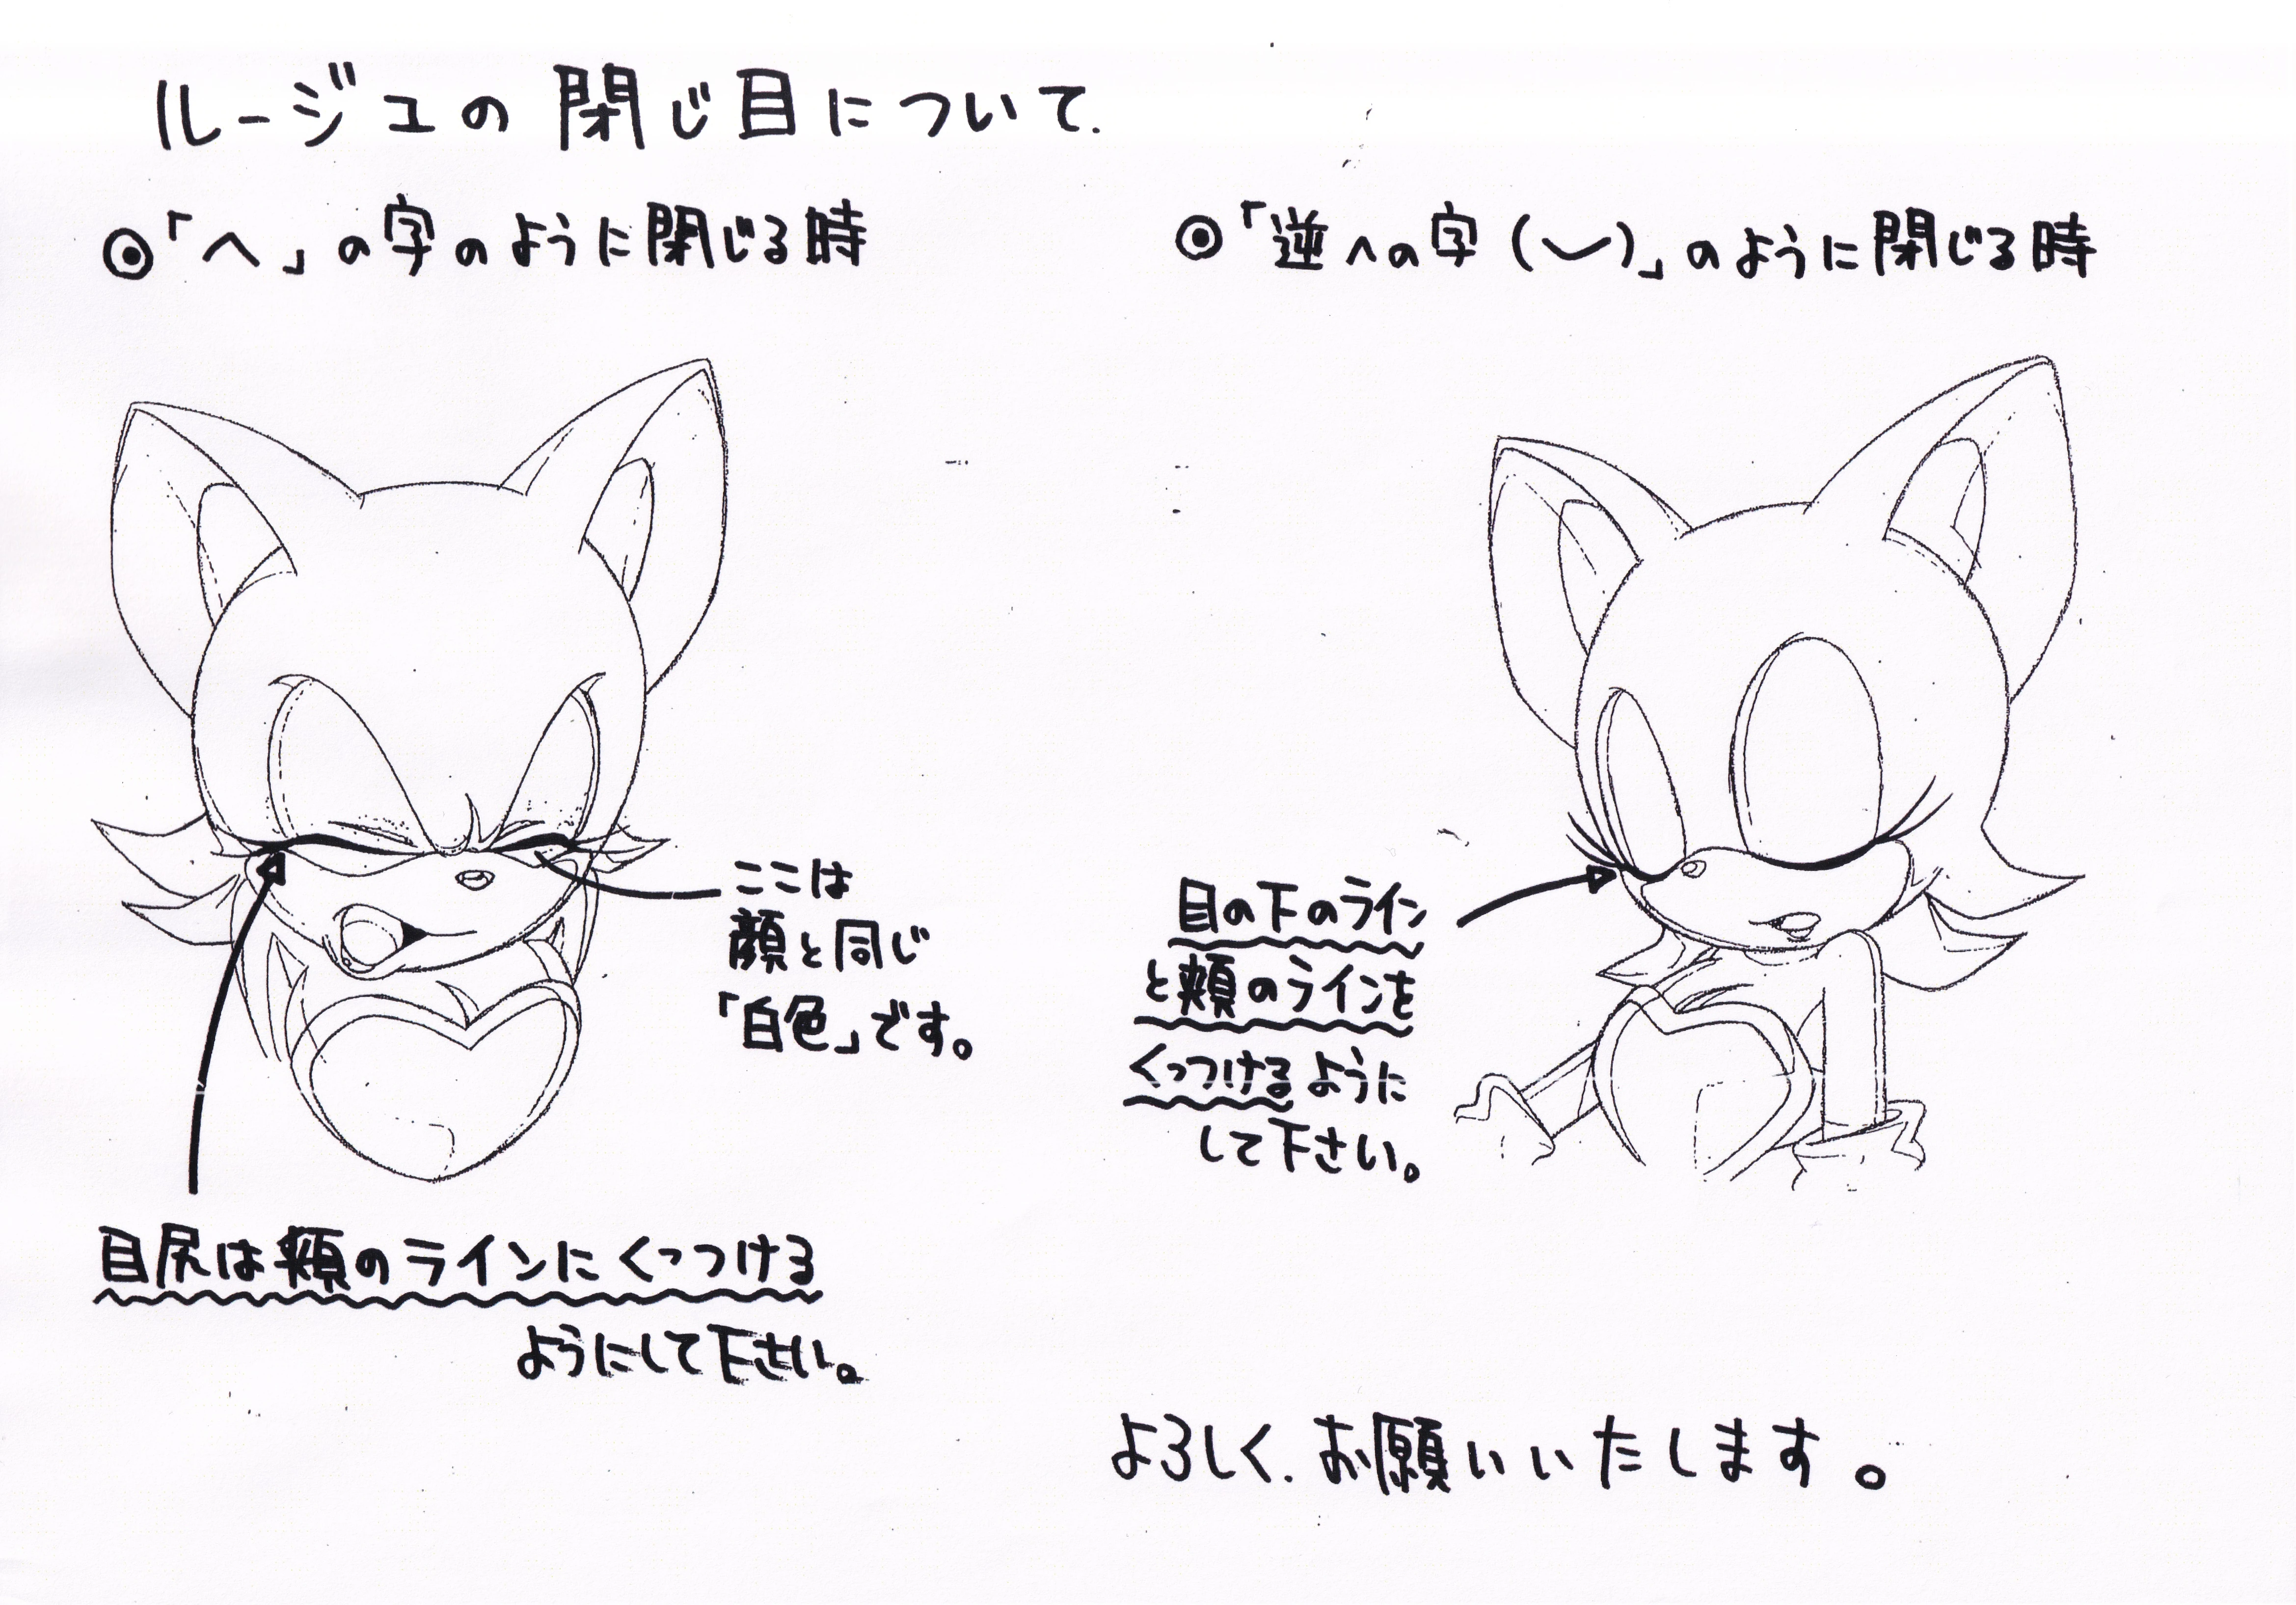 ルージュの閉じ目について.
◎「へ」の字のように閉じる時
ここは
顔と同じ
「白色」です。
目尻は頬のラインにくっつける
ようにして下さい。
◎「逆への字(︶)」のように閉じる時
目の下のライン
と頬のラインを
くっつけるように
して下さい。
よろしく.お願いいたします。